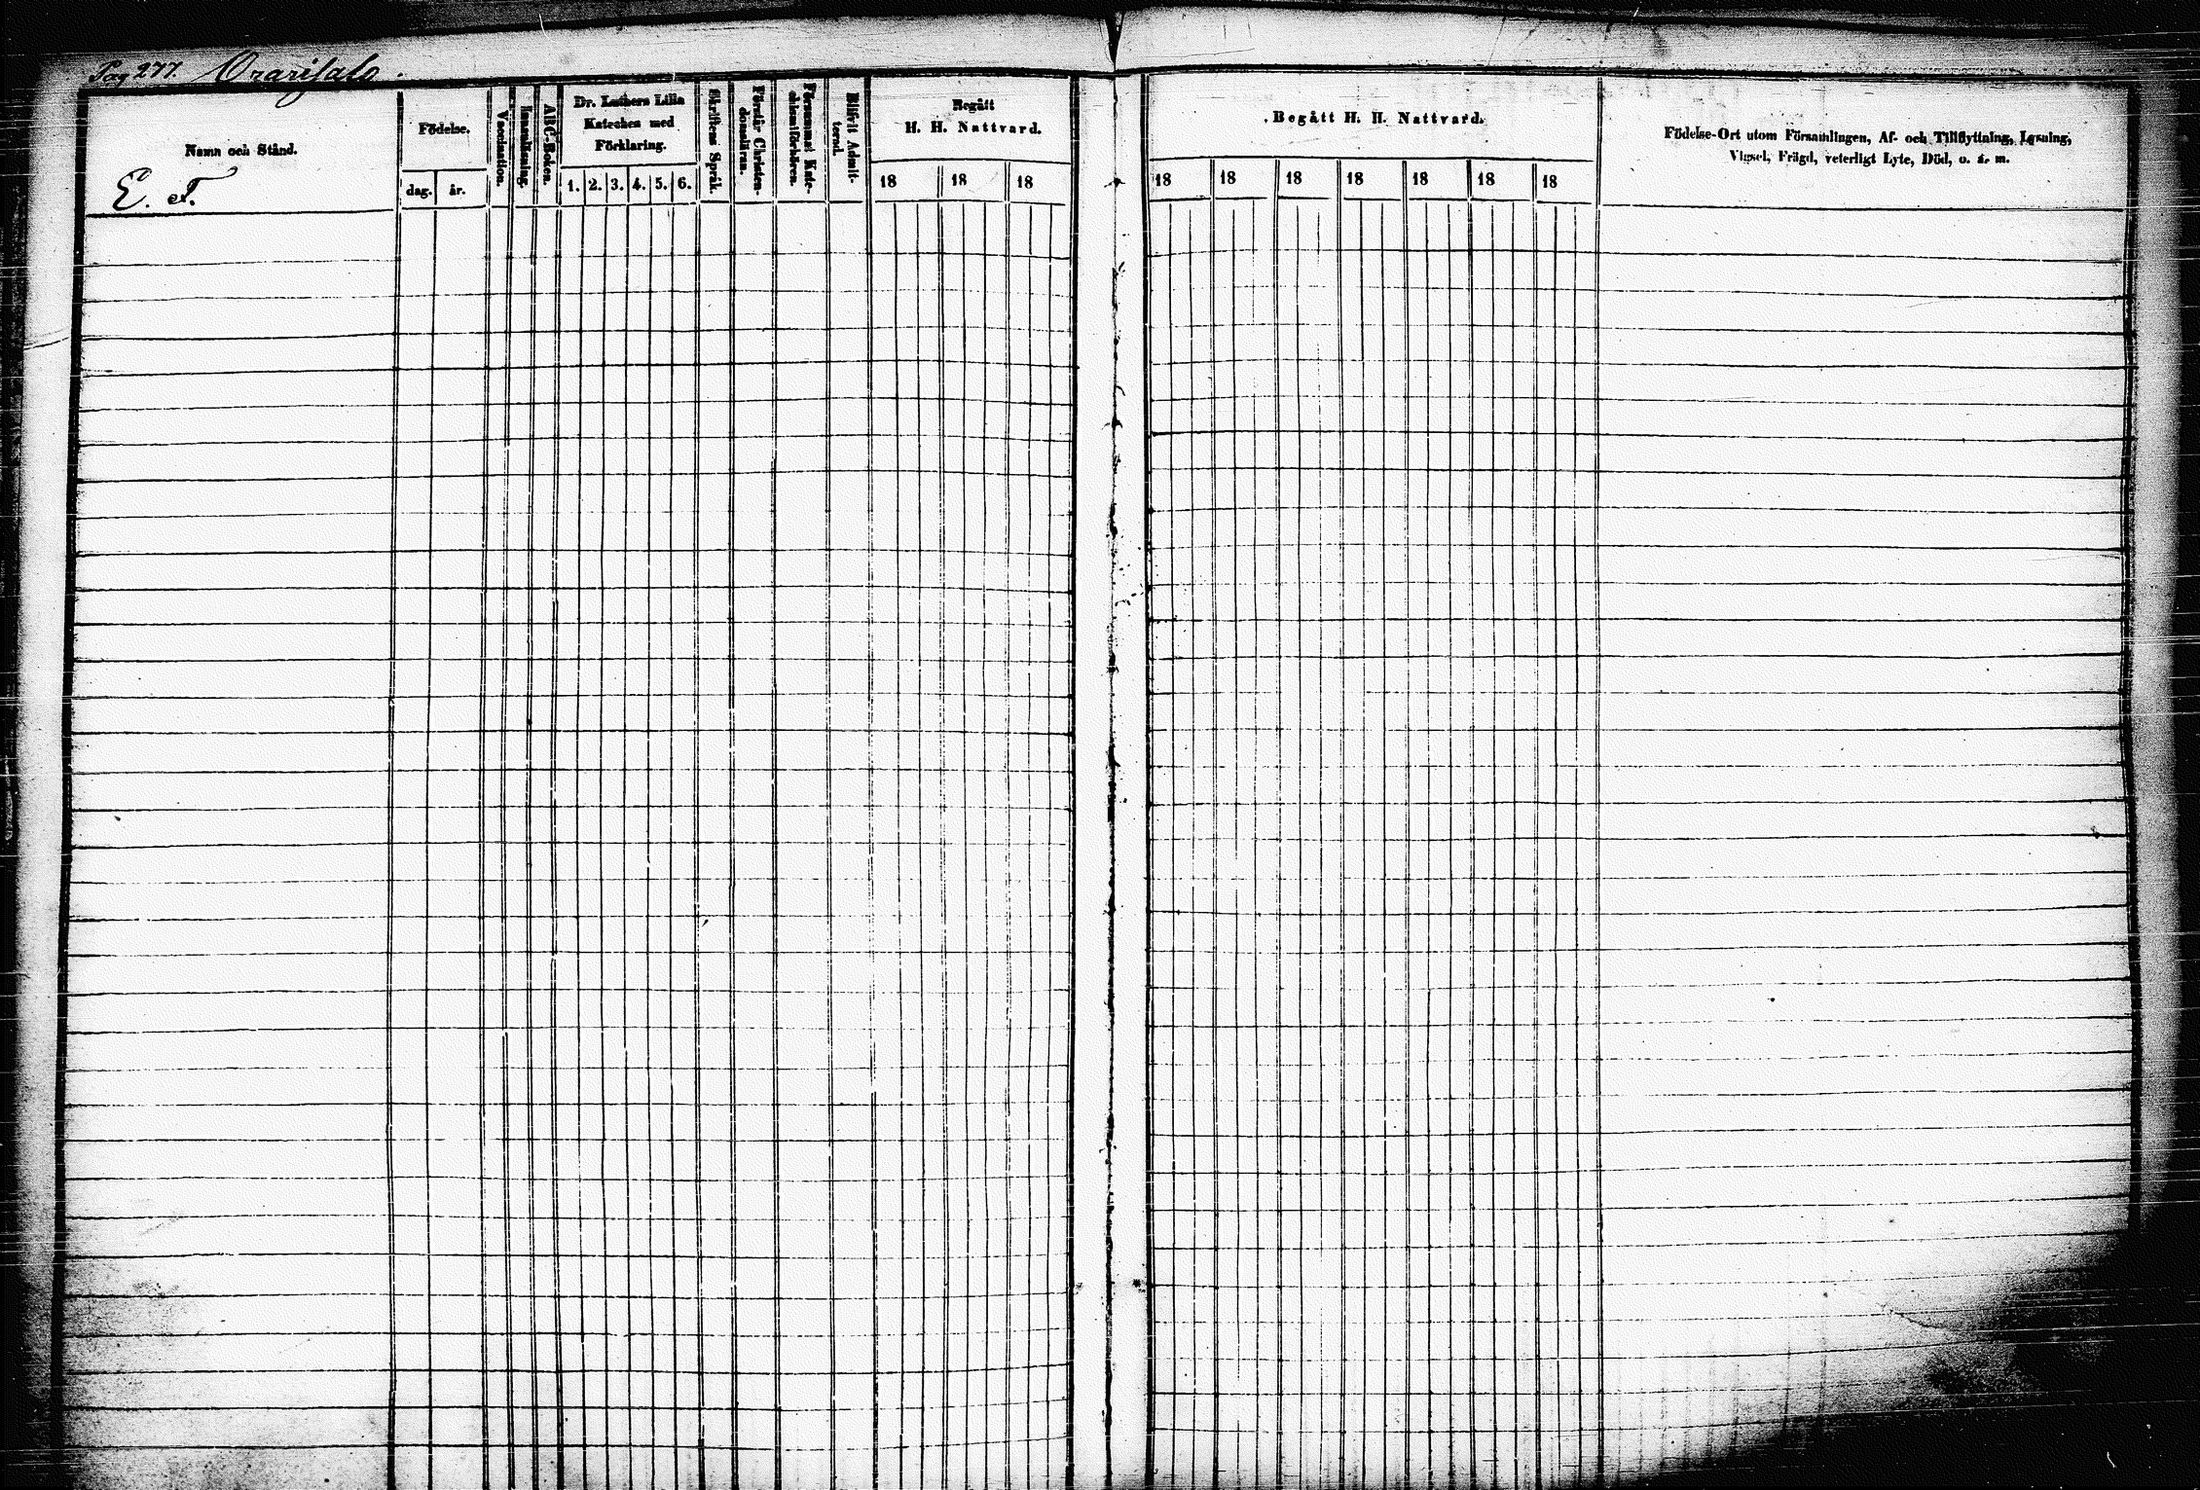 Pag 277. Orarisalo.
Namn och Stånd.
E. T.
Födelse.
dag. år.
Vaccination.
Innanläsning.
ABC-Boken.
Dr. Luthers Lilla
Kateches med
Förklaring.
1. 2. 3. 4. 5. 6.
Skriftens Språk.
Förstår Christen-
domsläran.
Försummat Kate-
chismiförhören.
Blifvit Admit-
terad.
Begått
H. H. Nattvard.
18 18 18
Begått H. H. Nattvard.
18 18 18 18 18 18 18
Födelse-Ort utom Församlingen, Af- och Tillflyttning, Lysning,
Vigsel, Frägd, veterligt Lyte, Död, o. s. m.